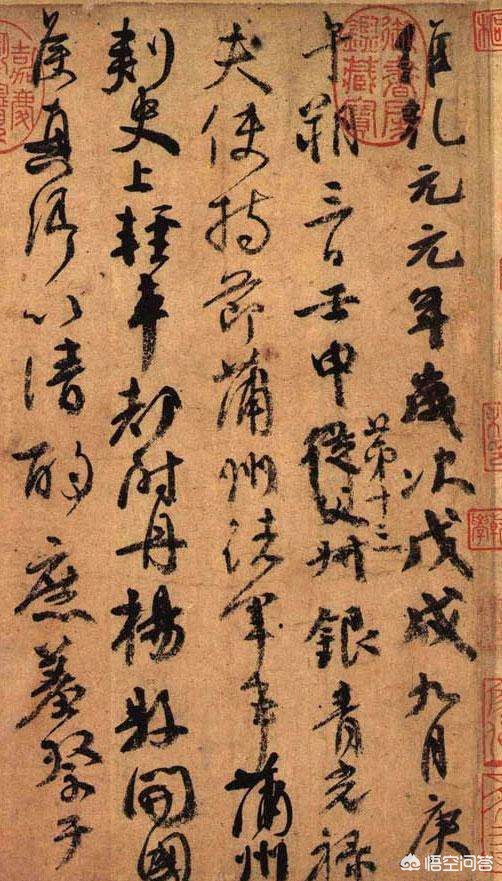 維乾元元年歲次戊戌九月庚
午朔三日壬申從父第十三叔銀青光祿
夫使持節蒲州諸軍事蒲州
刺史上輕車都尉丹楊縣開國
侯真卿以清酌庶羞祭于
御書房鑑藏寶
嘉慶
悟空问答